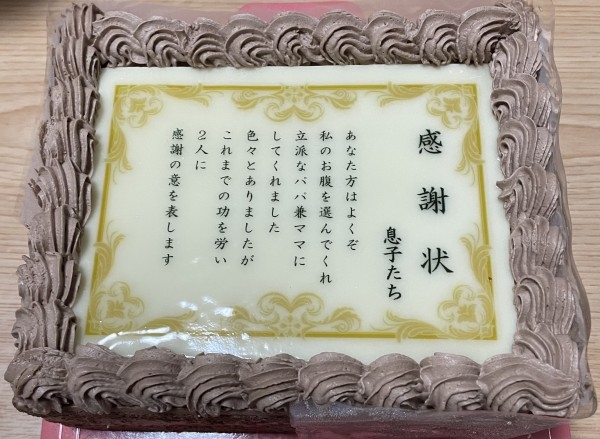 感謝状
息子たち
あなた方はよくぞ
私のお腹を選んでくれ
立派なパパ兼ママに
してくれました
色々とありましたが
これまでの功を労い
2人に
感謝の意を表します